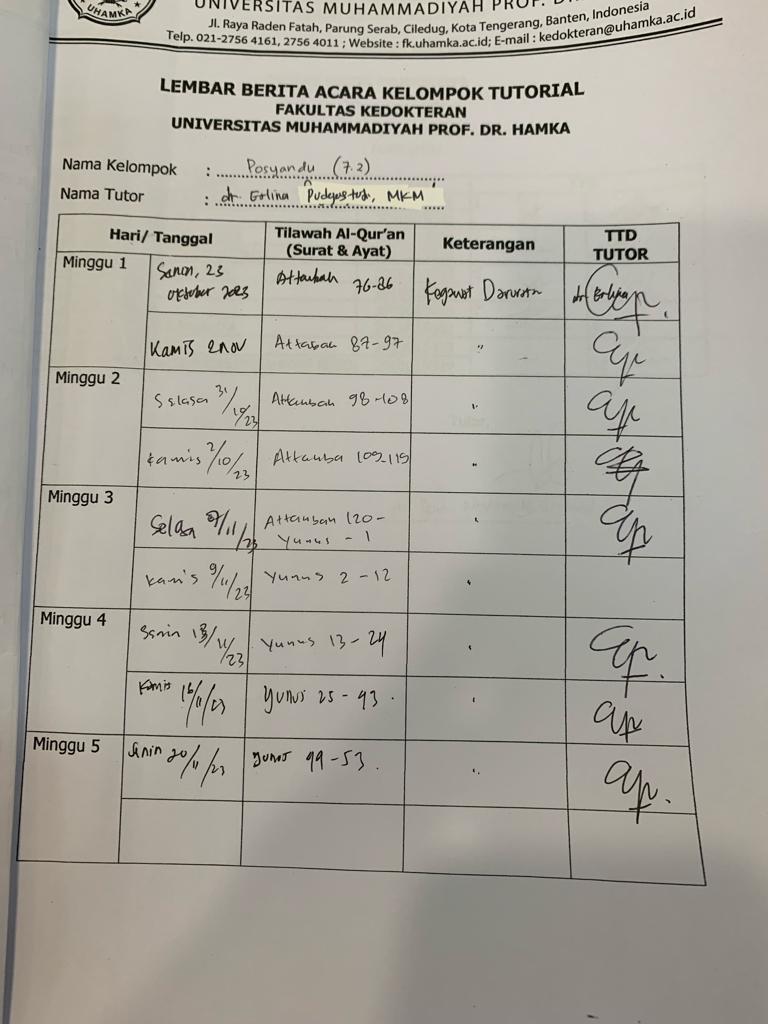 UHAMKA
UNIVERSITAS MUHAMMADIYAH PROF. D
Jl. Raya Raden Fatah, Parung Serab, Ciledug, Kota Tangerang, Banten, Indonesia
Telp. 021-2756 4161, 2756 4011 ; Website : fk.uhamka.ac.id; E-mail : kedokteran@uhamka.ac.id
LEMBAR BERITA ACARA KELOMPOK TUTORIAL
FAKULTAS KEDOKTERAN
UNIVERSITAS MUHAMMADIYAH PROF. DR. HAMKA
Nama Kelompok : Posyandu (7.2)
Nama Tutor : dr. Erlina Pudyastuti, MKM
Hari/ Tanggal Tilawah Al-Qur'an (Surat & Ayat) Keterangan TTD TUTOR
Minggu 1 Senin, 23 Oktober 2023 Attaubah 76-86 dr. Erlina
Kamis 2 Nov 87-97 "
Minggu 2 Selasa 31/10/23 Attaubah 98-108 "
Kamis 2/10/23 Attauba 109-119 "
Minggu 3 Selasa /11/23 Attaubah 120- Yunus - 1 "
Kamis 9/11/23 Yunus 2 - 12 "
Minggu 4 Senin 13/11/23 Yunus 13 - 24 "
Kamis 16/11/23 Yunus 25 - 43 "
Minggu 5 Senin 20/11/23 Yunus 44 - 53 "